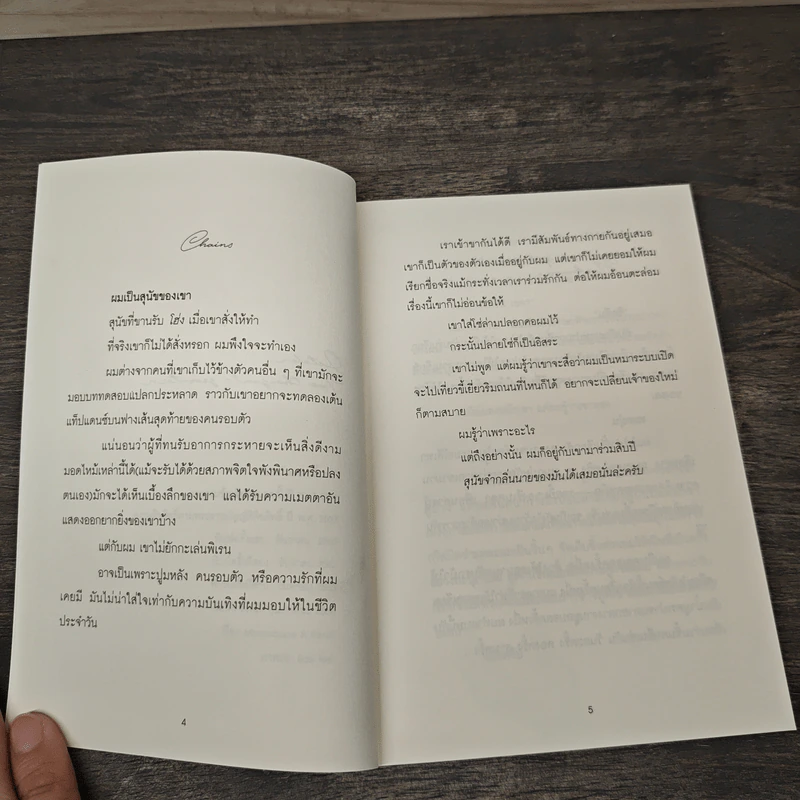 Chains
ผมเป็นสุนัขของเขา
สุนัขที่ขานรับ โฮ่ง เมื่อเขาสั่งให้ทำ
ที่จริงเขาก็ไม่ได้สั่งหรอก ผมพึงใจจะทำเอง
ผมต่างจากคนที่เขาเก็บไว้ข้างตัวคนอื่น ๆ ที่เขามักจะ
มอบบททดสอบแปลกประหลาด ราวกับเขาอยากจะทดลองเต้น
แท็ปแดนซ์บนฟางเส้นสุดท้ายของคนรอบตัว
แน่นอนว่าผู้ที่ทนรับอาการกระหายจะเห็นสิ่งดีงาม
มอดไหม้เหล่านี้ได้(แม้จะรับได้ด้วยสภาพจิตใจพังพินาศหรือปลง
ตนเอง)มักจะได้เห็นเบื้องลึกของเขา แลได้รับความเมตตาอัน
แสดงออกยากยิ่งของเขาบ้าง
แต่กับผม เขาไม่ยักกะเล่นพิเรน
อาจเป็นเพราะปูมหลัง คนรอบตัว หรือความรักที่ผม
เคยมี มันไม่น่าใส่ใจเท่ากับความบันเทิงที่ผมมอบให้ในชีวิต
ประจำวัน
4
เราเข้าขากันได้ดี เรามีสัมพันธ์ทางกายกันอยู่เสมอ
เขาก็เป็นตัวของตัวเองเมื่ออยู่กับผม แต่เขาก็ไม่เคยยอมให้ผม
เรียกชื่อจริงแม้กระทั่งเวลาเราร่วมรักกัน ต่อให้ผมอ้อนตะล่อม
เรื่องนี้เขาก็ไม่อ่อนข้อให้
เขาใส่โซ่ล่ามปลอกคอผมไว้
กระนั้นปลายโซ่ก็เป็นอิสระ
เขาไม่พูด แต่ผมรู้ว่าเขาจะสื่อว่าผมเป็นหมาระบบเปิด
จะไปเที่ยวขี้เยี่ยวริมถนนที่ไหนก็ได้ อยากจะเปลี่ยนเจ้าของใหม่
ก็ตามสบาย
ผมรู้ว่าเพราะอะไร
แต่ถึงอย่างนั้น ผมก็อยู่กับเขามาร่วมสิบปี
สุนัขจำกลิ่นนายของมันได้เสมอนั่นล่ะครับ
5